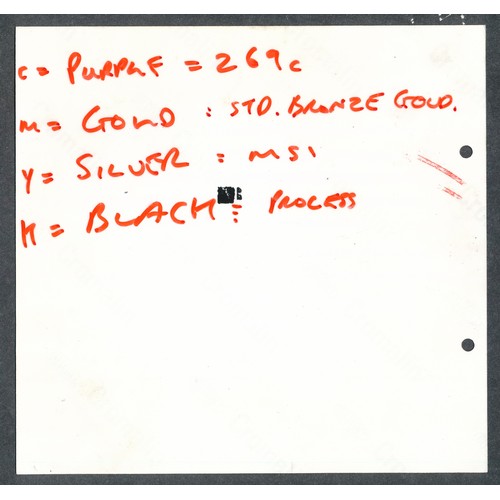 C = PURPLE = 269c
M = GOLD : STD. BRONZE GOLD.
Y = SILVER : MSI
K = BLACK : PROCESS